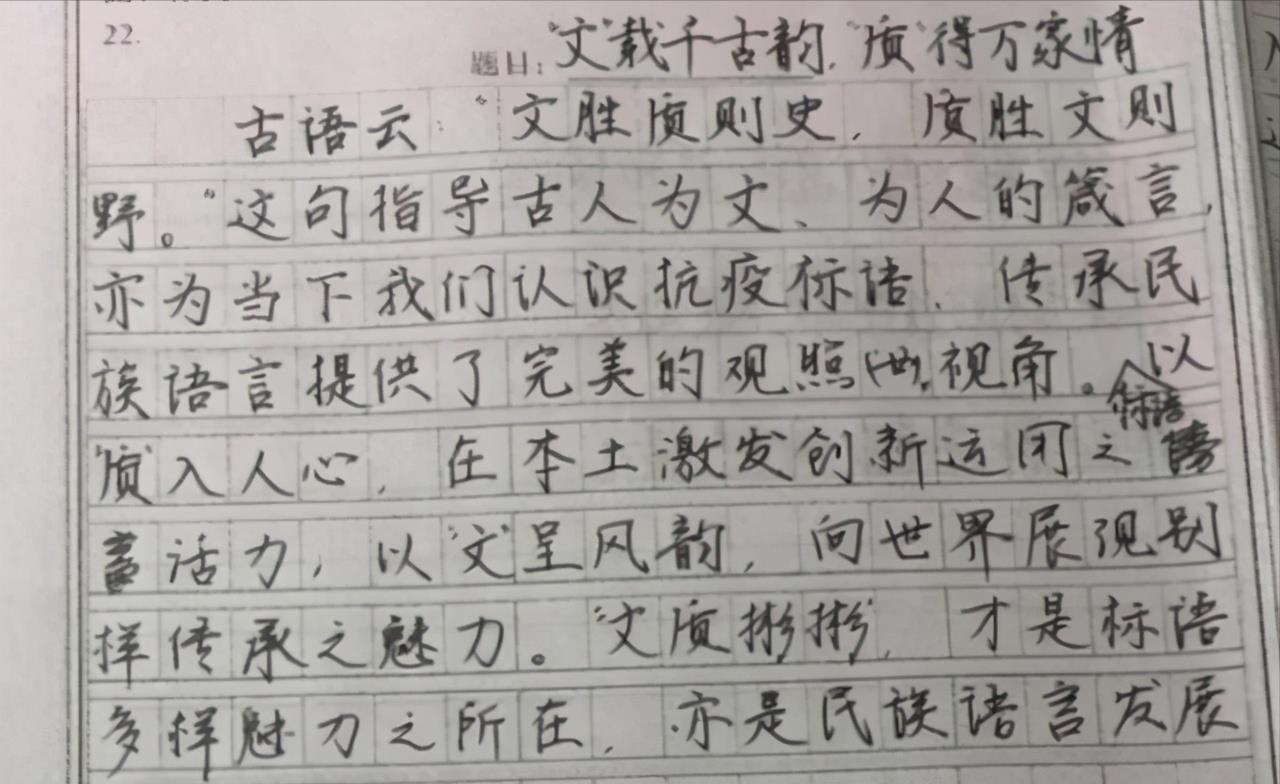 22.
题目："文"载千古韵，"质"得万家情
古语云："文胜质则史，质胜文则
野。"这句指导古人为文、为人的箴言，
亦为当下我们认识抗疫标语、传承民
族语言提供了完美的观照视角。以
标语
"质"入人心，在本土激发创新运用之
活力，以"文"呈风韵，向世界展现别
样传承之魅力。"文质彬彬"，才是标语
多样魅力之所在，亦是民族语言发展